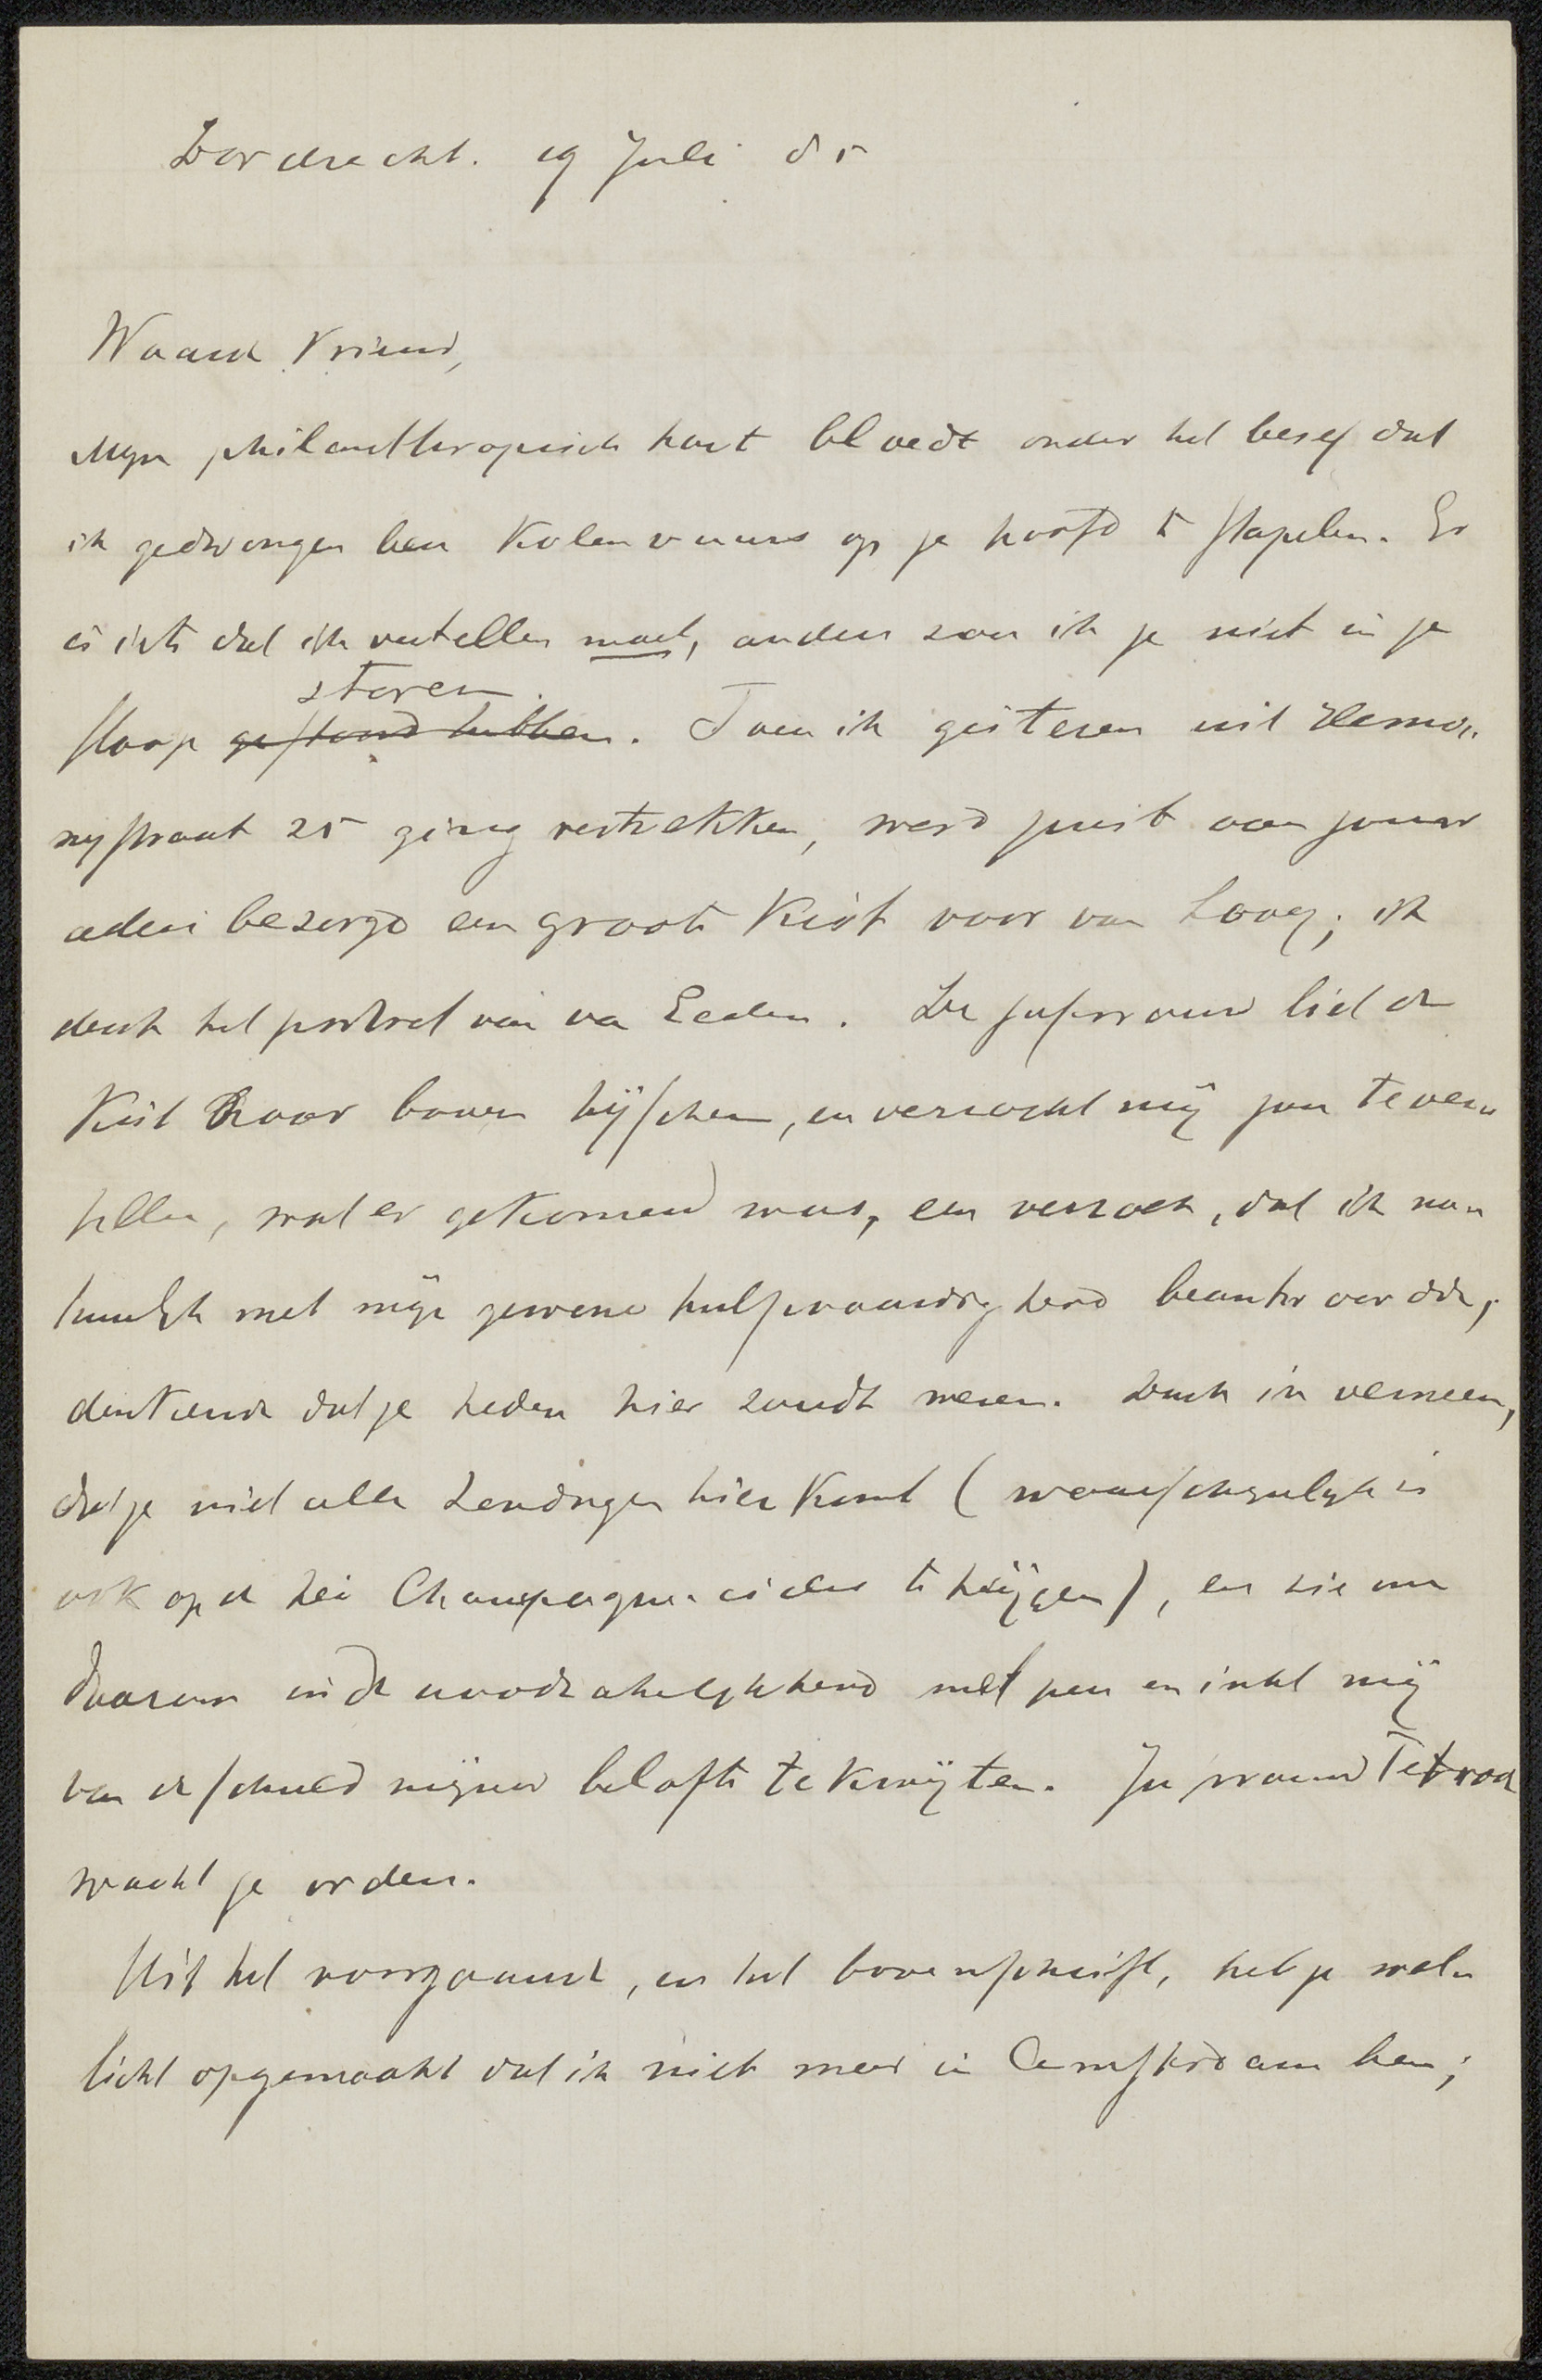 Dordrecht. 19 Juli 85
Waarde Vriend,
Mijn philanthropisch hart bloedt onder het besef dat
ik gedwongen ben kolen vuurs op je hoofd te stapelen. Er
is iets dat ik vertellen moet, anders zou ik je niet in je
storen
slaap gestoord hebben. Toen ik gisteren uit Hemo-
nystraat 25 ging vertrekken, werd juist aan jouw
adres bezorgd een groote kist voor van Looy; ik
denk het portret van van Eeden. De juffrouw liet de
kist naar boven hijschen, en verzocht mij jou te ver-
tellen, wat er gekomen was, een verzoek, dat ik na-
tuurlijk met mijn gewone hulpvaardigheid beantwoordde,
denkende dat je heden hier zoudt wezen. Doch ik verneem,
dat je niet alle Zondagen hier komt (waarschijnlijk is
ook op de hei Champagne-cider te krijgen), en zie me
daarom in de noodzakelijkheid met pen en inkt mij
van de schuld mijner belofte te kwijten. Juffrouw Tétrode
wacht je orders.
Uit het voorgaande, en het bovenschrift, heb je wel-
licht opgemaakt dat ik niet meer in Amsterdam ben;